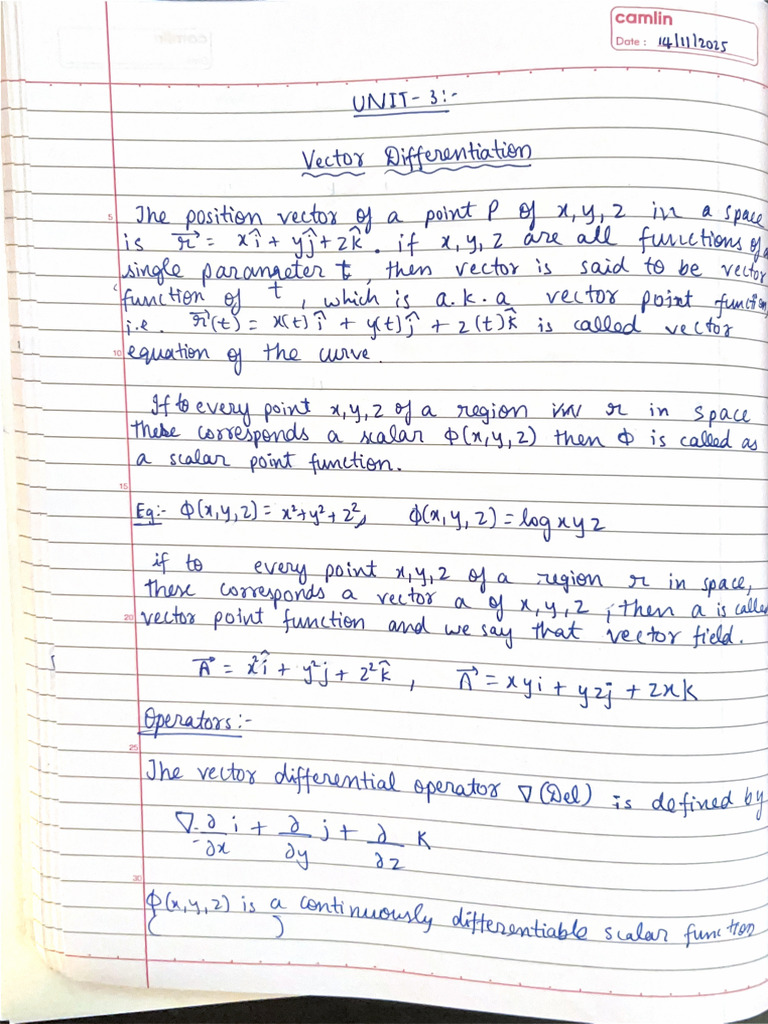 camlin
Date: 14/11/2025
UNIT-3:-
Vector Differentiation
The position vector of a point P of x,y,z in a space
is r⃗ = xî + yĵ + zk̂. if x,y,z are all functions of a
single parameter t, then vector is said to be vector
function of t, which is a.k.a vector point function,
i.e. r⃗(t) = x(t)î + y(t)ĵ + z(t)k̂ is called vector
equation of the curve.
If to every point x,y,z of a region in r in space
these corresponds a scalar Φ(x,y,z) then Φ is called as
a scalar point function.
Eg:- Φ(x,y,z) = x²+y²+z², Φ(x,y,z) = log xyz
if to every point x,y,z of a region r in space,
these corresponds a vector a of x,y,z, then a is called
vector point function and we say that vector field.
A⃗ = x²î + y²j + z²k̂, A⃗ = xyi + yzj + zxk
Operators:-
The vector differential operator ∇ (Del) is defined by
∇ ∂/∂x i + ∂/∂y j + ∂/∂z k
Φ(x,y,z) is a continuously differentiable scalar function
( )
5
10
15
20
25
30